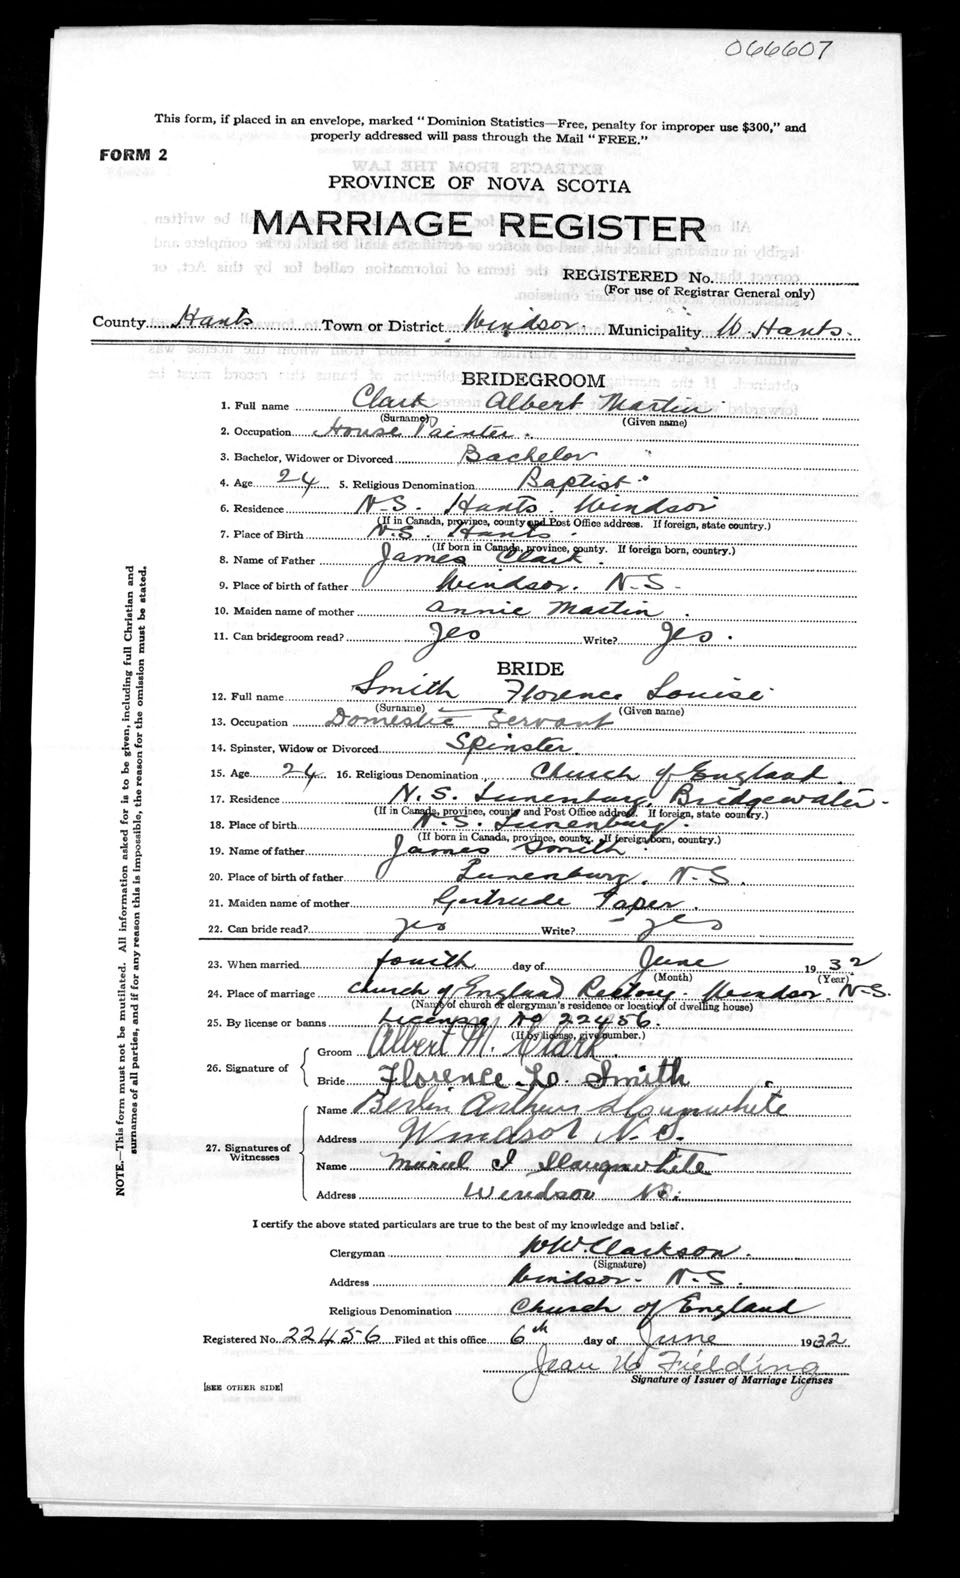 066607
This form, if placed in an envelope, marked "Dominion Statistics—Free, penalty for improper use $300," and
properly addressed will pass through the Mail "FREE."
FORM 2
PROVINCE OF NOVA SCOTIA
MARRIAGE REGISTER
REGISTERED No.
(For use of Registrar General only)
County Hants Town or District Windsor. Municipality W. Hants.
BRIDEGROOM
1. Full name Clark Albert Martin
(Surname) (Given name)
2. Occupation House Painter.
3. Bachelor, Widower or Divorced Bachelor
4. Age 24 5. Religious Denomination Baptist
6. Residence N.S. Hants. Windsor
(If in Canada, province, county and Post Office address. If foreign, state country.)
7. Place of Birth N.S. Hants.
(If born in Canada, province, county. If foreign born, country.)
8. Name of Father James Clark.
9. Place of birth of father Windsor. N.S.
10. Maiden name of mother Annie Martin.
11. Can bridegroom read? Yes Write? Yes.
BRIDE
12. Full name Smith Florence Louise
(Surname) (Given name)
13. Occupation Domestic Servant
14. Spinster, Widow or Divorced Spinster
15. Age 24 16. Religious Denomination Church of England
17. Residence N.S. Lunenburg, Bridgewater.
(If in Canada, province, county and Post Office address. If foreign, state country.)
18. Place of birth N.S. Lunenburg.
(If born in Canada, province, county. If foreign born, country.)
19. Name of father James Smith.
20. Place of birth of father Lunenburg. N.S.
21. Maiden name of mother Gertrude Taper.
22. Can bride read? yes Write? yes
23. When married fourth day of June 1932
(Month) (Year)
24. Place of marriage Church of England Rectory. Windsor. N.S.
(Name of church or clergyman's residence or location of dwelling house)
25. By license or banns License No 22456.
(If by license, give number.)
26. Signature of
Groom Albert M. Clark
Bride Florence L. Smith
27. Signatures of Witnesses
Name Berlin Arthur Slaunwhite
Address Windsor N.S.
Name Muriel I Slaugwhite
Address Windsor NS.
I certify the above stated particulars are true to the best of my knowledge and belief.
Clergyman W.W. Clarkson.
(Signature)
Address Windsor. N.S.
Religious Denomination Church of England
Registered No. 22456 Filed at this office 6th day of June 1932
Jean W Fielding
Signature of Issuer of Marriage Licenses
[SEE OTHER SIDE]
NOTE.—This form must not be mutilated. All information asked for is to be given, including full Christian and
surnames of all parties, and if for any reason this is impossible, the reason for the omission must be stated.